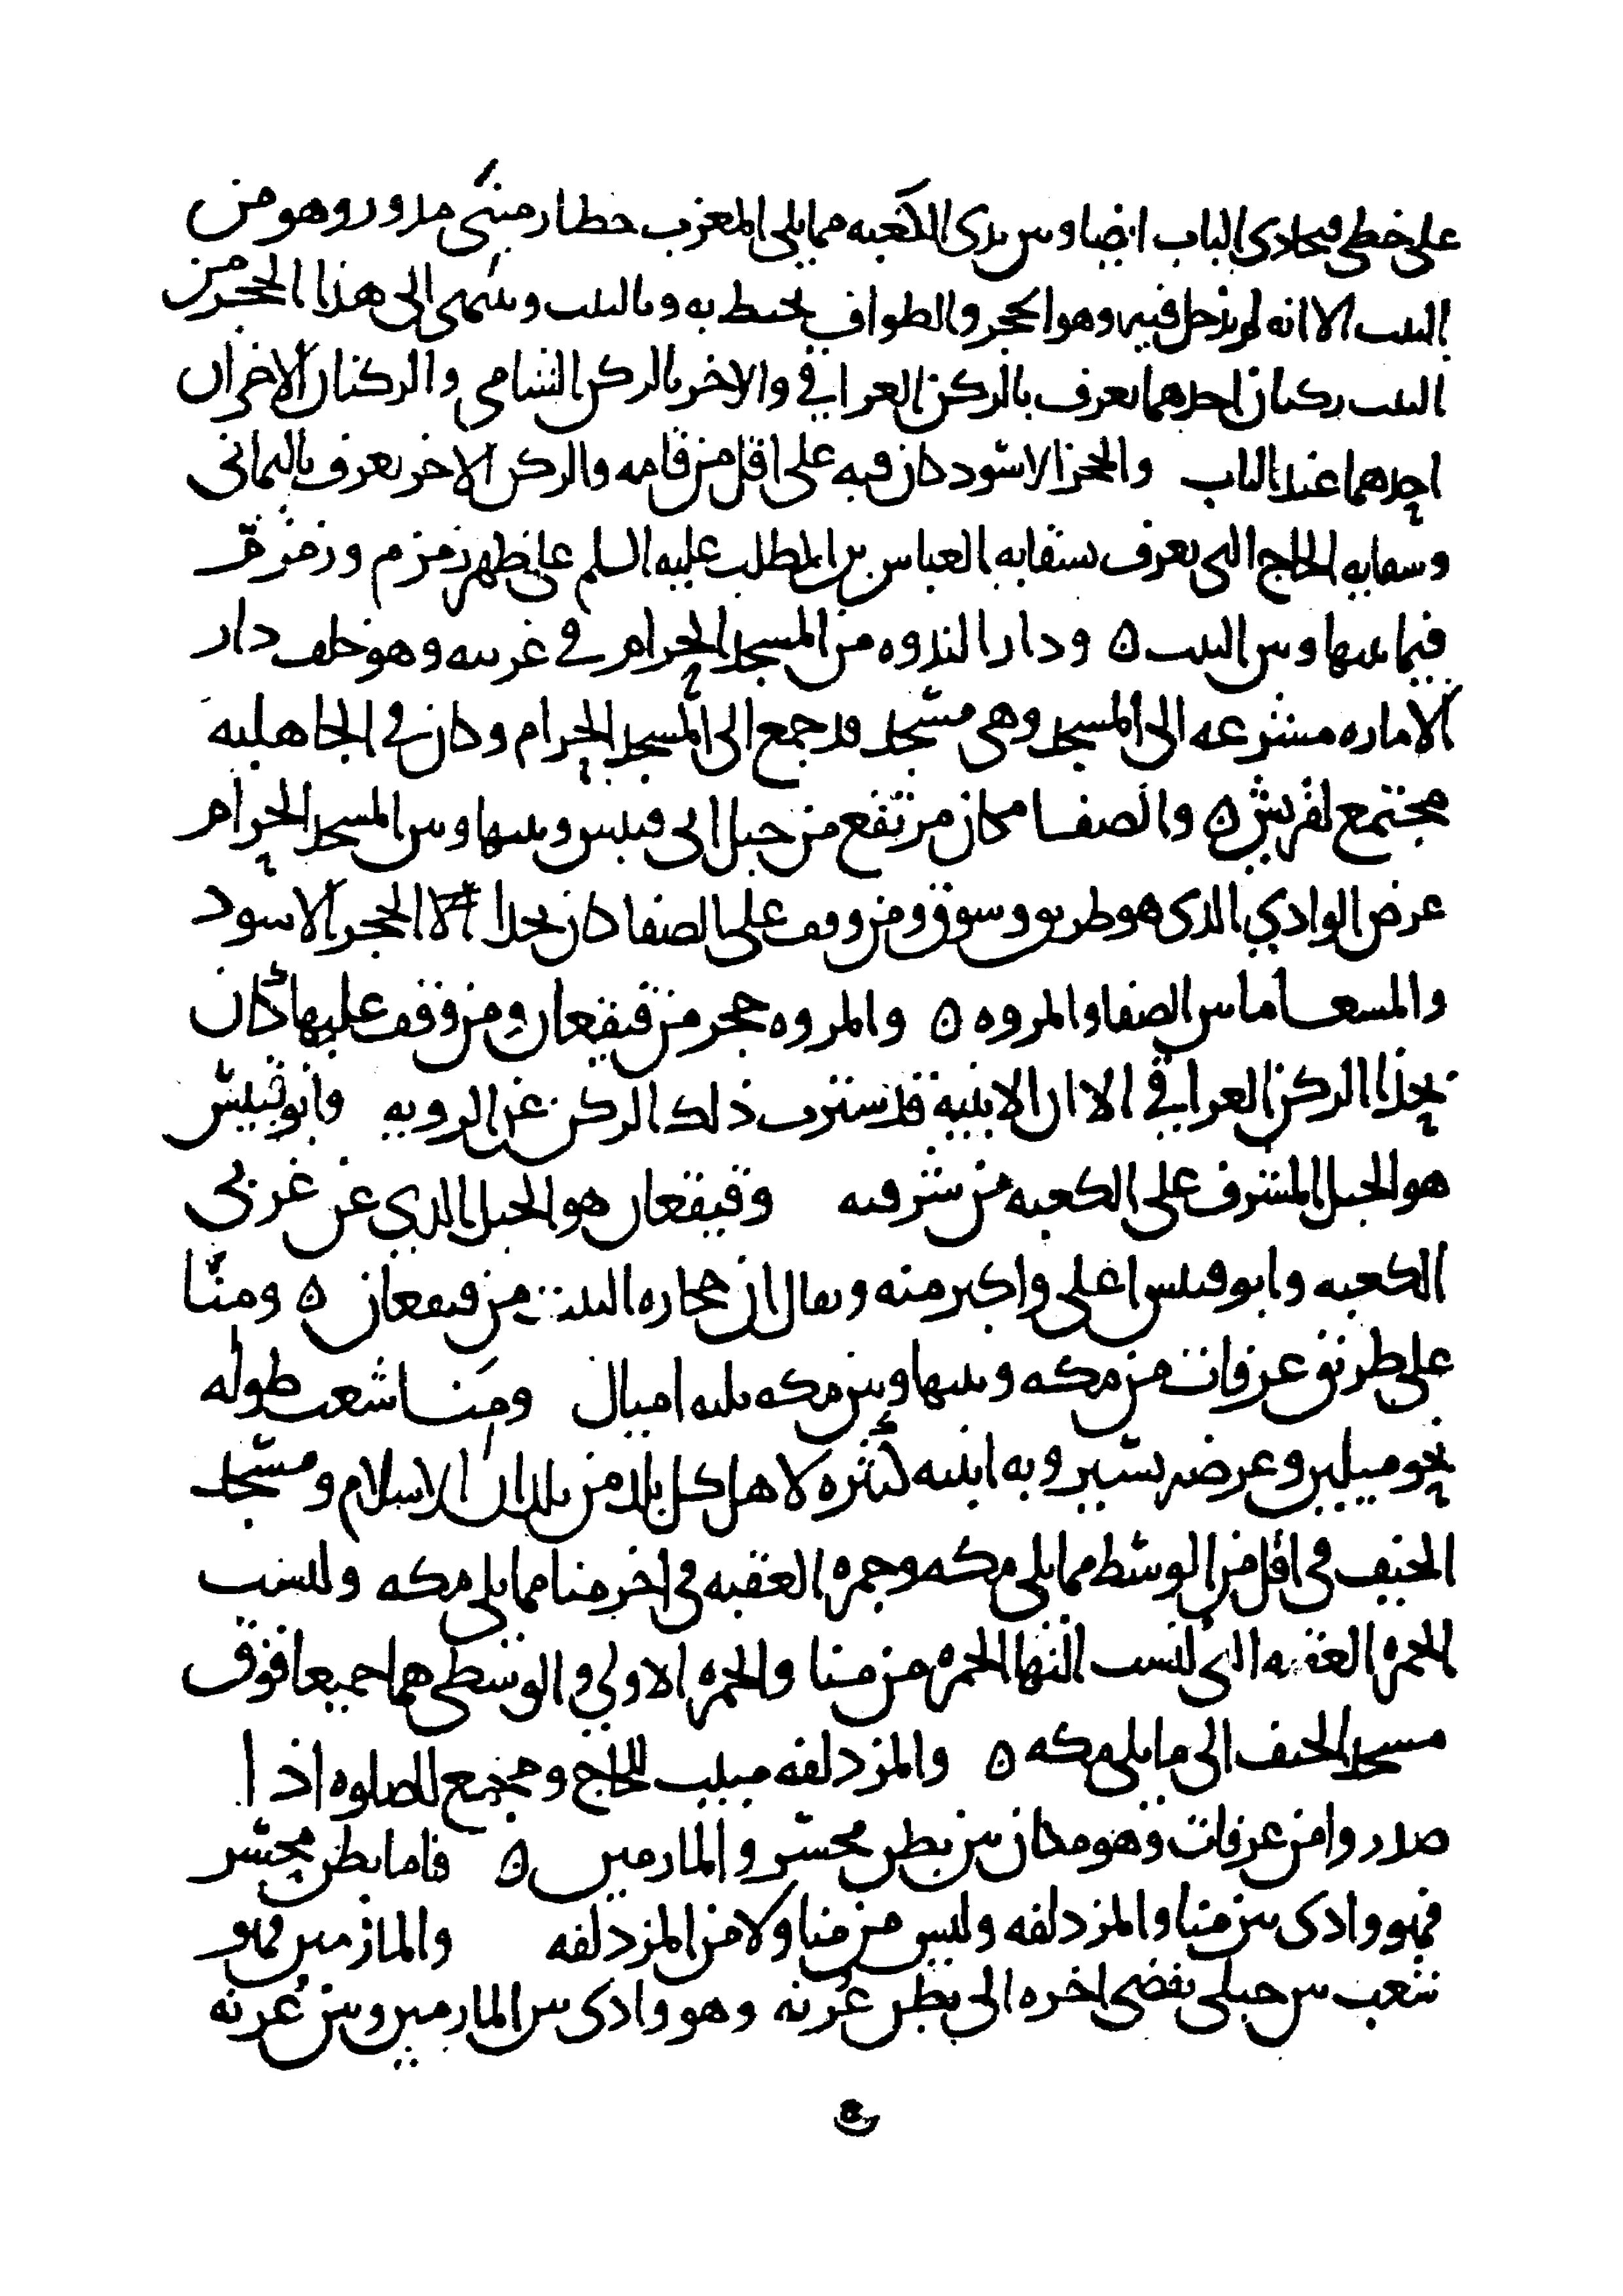 على خطى محاذى الباب ايضا وبين يدى الكعبه مما يلى المغرب حطار مبنى مدور وهو من
البيت الا انه لم يدخل فيه وهو الحجر والطواف يحيط به وبالبيت وينتهى الى هذا الحجر من
البيت ركنان احدهما يعرف بالركن العراقي والاخر بالركن الشامي والركنان الاخران
احدهما عند الباب والحجر الاسود كان فيه على اقل من قامه والركن الاخر يعرف باليماني
وسقايه الحاج التى يعرف بسقايه العباس بن المطلب عليه السلم على ظهر زمزم وزمزم
فيما بينها وبين البيت ه ودار الندوه من المسجد الحرام في غربيه وهو خلف دار
الاماره مشرعه الى المسجد وهى مسجد قد جمع الى المسجد الحرام وكان في الجاهليه
مجتمع لقريش ه والصفا مكان مرتفع من جبل ابى قبيس وبينها وبين المسجد الحرام
عرض الوادي الذى هو طريق وسوق ومن وقف على الصفا كان بحذا الحجر الاسود
والمسعا ما بين الصفا والمروه ه والمروه حجر من قيقعان ومن وقف عليها كان
بحذا الركن العراقي الا ان الابنيه قد سترت ذلك الركن عن الرويه وابو قبيس
هو الجبل المشرف على الكعبه من شرقيه وقيقعان هو الجبل الذي عن غربي
الكعبه وابو قبيس اعلى واكبر منه ويقال ان حجاره البيت من قيقعان ه ومنا
على طريق عرفات من مكه وبينها وبين مكه ثلثه اميال ومنا شعب طوله
نحو ميلين وعرضه يسير وبه ابنيه كثيره لاهل كل بلد من بلدان الاسلام ومسجد
الخيف في اقل من الوسط مما يلى مكه وجمره العقبه في اخر منا مما يلى مكه وليست
الجمره العقبه التى تنسب اليها الجمره من منا والجمره الاولي والوسطى هما جميعا فوق
مسجد الخيف الى ما يلى مكه ه والمزدلفه مبيت للحاج ومجمع للصلوه اذا
صدروا من عرفات وهو مكان بين بطن محسر والمازمين ه فاما بطن محسر
فهو وادى بين منا والمزدلفه وليس من منا ولا من المزدلفه والمازمين فهو
شعب بين جبلى يفضى اخره الى بطن عرنه وهو وادى بين المازمين وبين عرنه